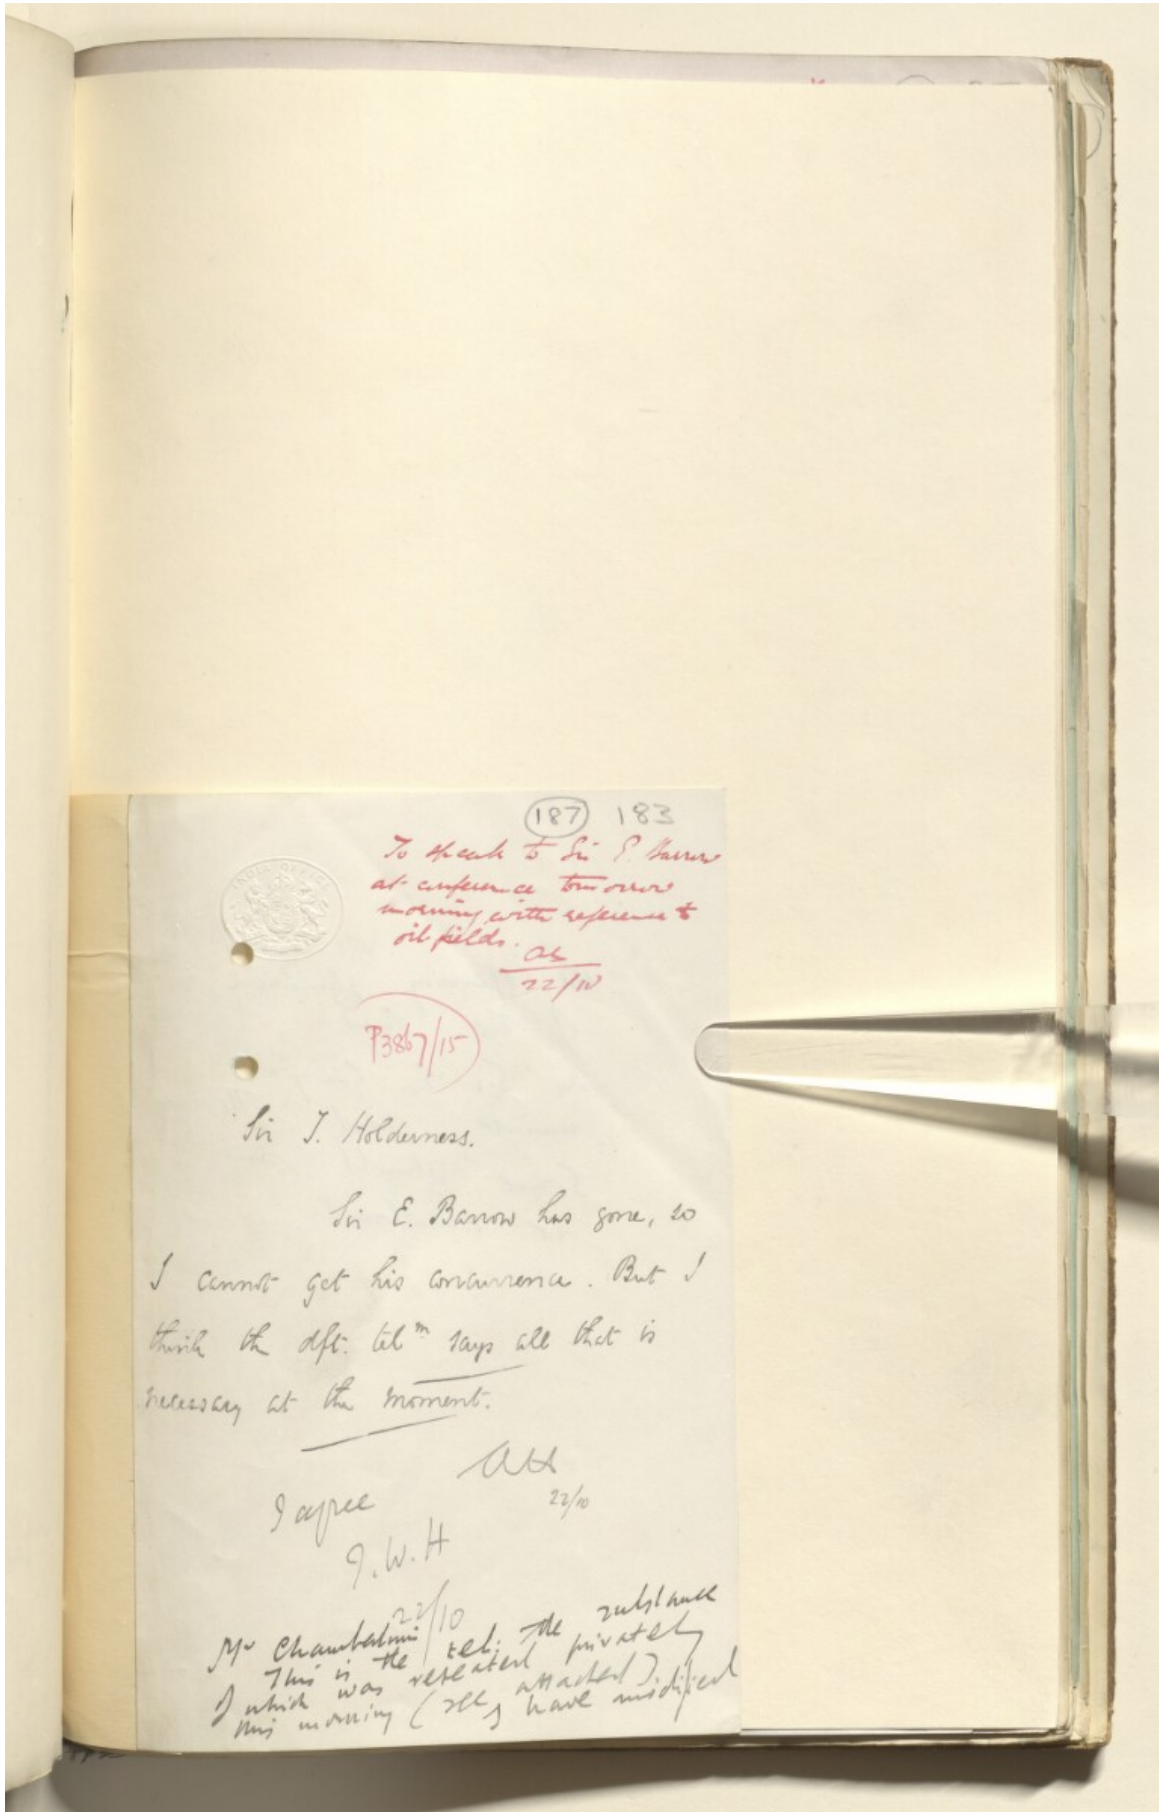 187 183
To speak to Sir E. Barrow
at conference tomorrow
morning with reference to
oil fields.
22/10
INDIA OFFICE
P3867/15
Sir T. Holderness.
Sir E. Barrow has gone, so
I cannot get his concurrence. But I
think the dft. telm says all that is
necessary at the moment.
AH
22/10
I agree
T.W.H
22/10
Mr Chamberlain
This is the tel. the substance
of which was repeated privately
this morning (see attached). I have modified